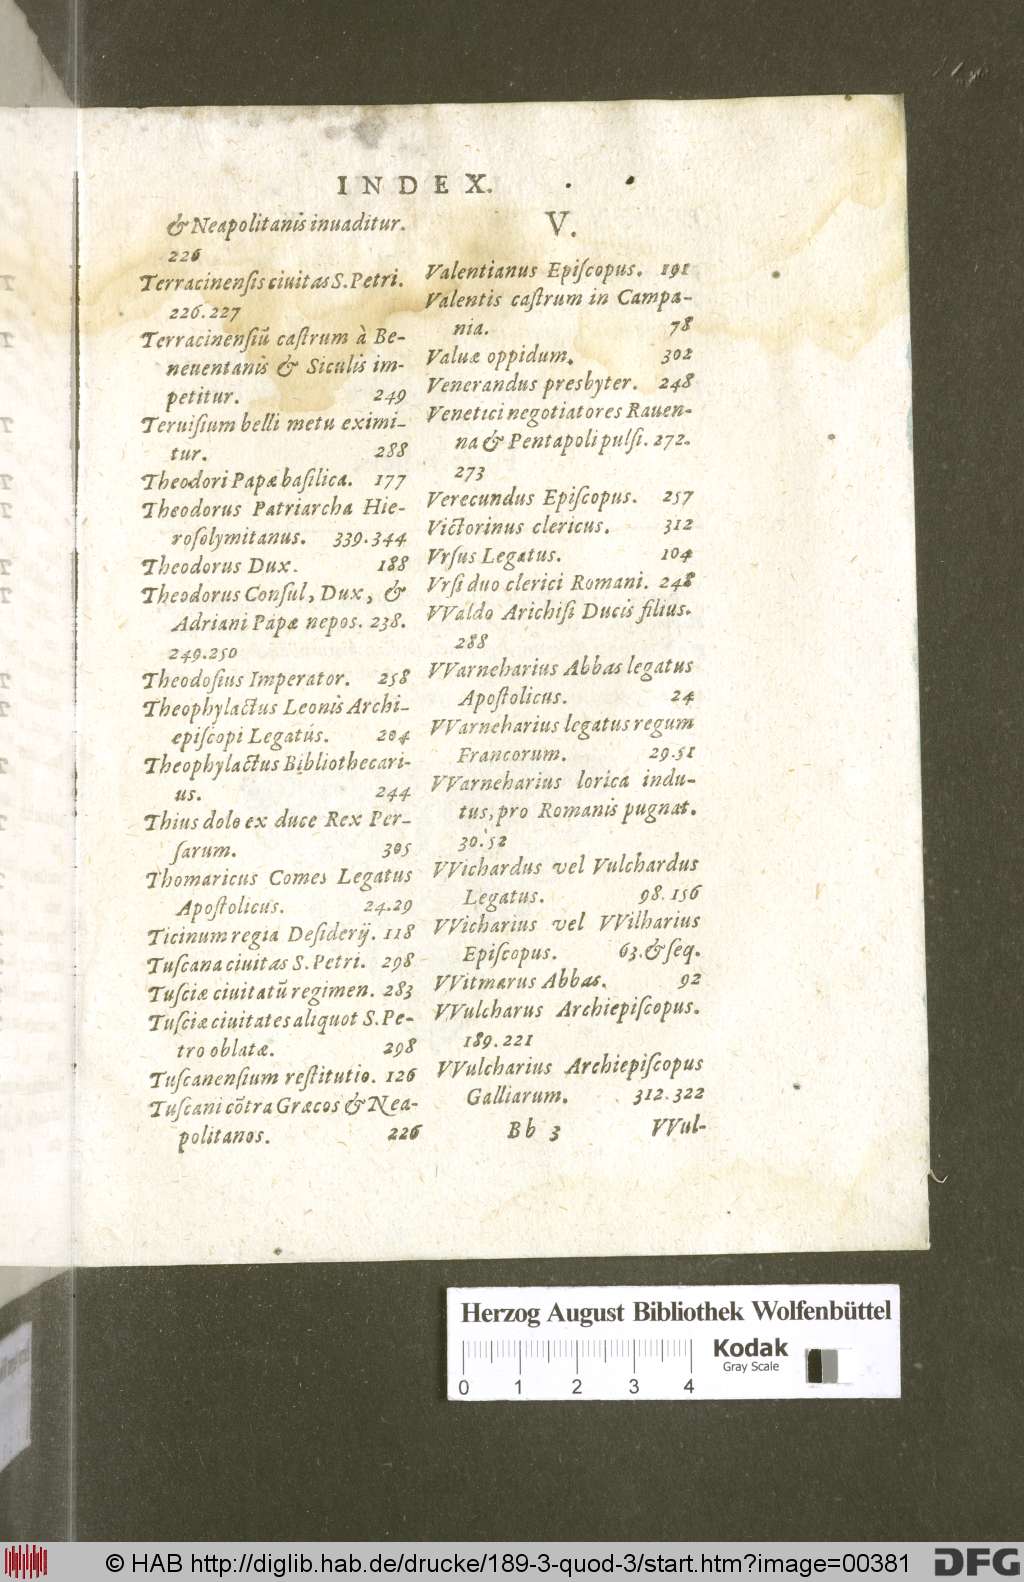 INDEX.
& Neapolitanis inuaditur.
226
Terracinensis ciuitas S. Petri.
226.227
Terracinensiũ castrum à Be-
neuentanis & Siculis im-
petitur. 249
Teruisium belli metu eximi-
tur. 288
Theodori Papæ basilica. 177
Theodorus Patriarcha Hie-
rosolymitanus. 339.344
Theodorus Dux. 188
Theodorus Consul, Dux, &
Adriani Papæ nepos. 238.
249.250
Theodosius Imperator. 258
Theophylactus Leonis Archi-
episcopi Legatus. 204
Theophylactus Bibliothecari-
us. 244
Thius dolo ex duce Rex Per-
sarum. 305
Thomaricus Comes Legatus
Apostolicus. 24.29
Ticinum regia Desiderij. 118
Tuscana ciuitas S. Petri. 298
Tusciæ ciuitatũ regimen. 283
Tusciæ ciuitates aliquot S. Pe-
tro oblatæ. 298
Tuscanensium restitutio. 126
Tuscani cõtra Græcos & Nea-
politanos. 226
V.
Valentianus Episcopus. 191
Valentis castrum in Campa-
nia. 78
Valuæ oppidum. 302
Venerandus presbyter. 248
Venetici negotiatores Rauen-
na & Pentapoli pulsi. 272.
273
Verecundus Episcopus. 257
Victorinus clericus. 312
Vrsus Legatus. 104
Vrsi duo clerici Romani. 248
VValdo Arichisi Ducis filius.
288
VVarneharius Abbas legatus
Apostolicus. 24
VVarneharius legatus regum
Francorum. 29.51
VVarneharius lorica indu-
tus, pro Romanis pugnat.
30.52
VVichardus vel Vulchardus
Legatus. 98.156
VVicharius vel VVilharius
Episcopus. 63.& seq.
VVitmarus Abbas. 92
VVulcharus Archiepiscopus.
189.221
VVulcharius Archiepiscopus
Galliarum. 312.322
Bb 3 VVul-
Herzog August Bibliothek Wolfenbüttel
Kodak
Gray Scale
0 1 2 3 4
© HAB http://diglib.hab.de/drucke/189-3-quod-3/start.htm?image=00381
DFG